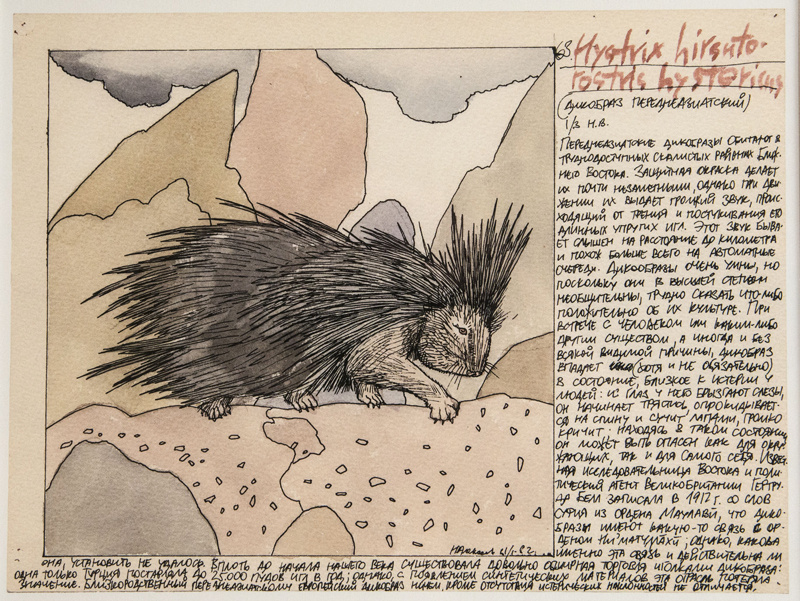 68. Hystrix hirsuto-
rostris hystericus
(Дикобраз переднеазиатский)
1/3 н.в.
Переднеазиатские дикобразы обитают в
труднодоступных скалистых районах Ближ-
него Востока. Защитная окраска делает
их почти незаметными, однако при дви-
жении их выдает громкий звук, проис-
ходящий от трения и постукивания его
длинных упругих игл. Этот звук быва-
ет слышен на расстояние до километра
и похож больше всего на автоматные
очереди. Дикобразы очень умны, но
поскольку они в высшей степени
необщительны, трудно сказать что-либо
положительно об их культуре. При
встрече с человеком или каким-либо
другим существом, а иногда и без
всякой видимой причины, дикобраз
впадает (хотя и не обязательно)
в состояние, близкое к истерии у
людей: из глаз у него брызгают слезы,
он начинает трястись, опрокидывает-
ся на спину и сучит лапами, громко
кричит. Находясь в таком состоянии
он может быть опасен как для окру-
жающих, так и для самого себя. Извест-
ная исследовательница Востока и поли-
тический агент Великобритании Гертру-
да Бел записала в 1917 г. со слов
суфия из ордена Маулави, что дико-
бразы имеют какую-то связь с ор-
деном Ни'матуллахи; однако, какова
именно эта связь и действительна ли
она, установить не удалось. Вплоть до начала нашего века существовала довольно обширная торговля иголками дикобраза:
одна только Турция поставляла до 25.000 пудов игл в год; однако, с появлением синтетических материалов эта отрасль потеряла
значение. Близкородственный переднеазиатскому европейский дикобраз ничем, кроме отсутствия истерических наклонностей не отличается.